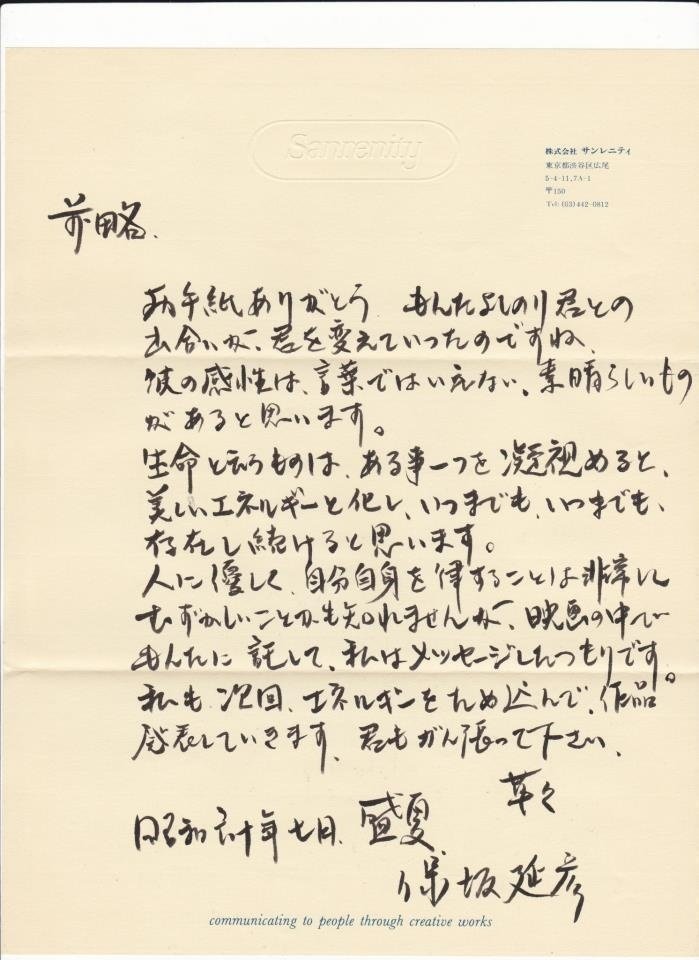 Sanrenity
株式会社 サンレニティ
東京都渋谷区広尾
5-4-11,7A-1
〒150
Tel: (03)442-0812
前略.
お手紙ありがとう もんたよしのり君との
出合いが、君を変えていったのですね、
彼の感性は、言葉ではいえない、素晴らしいもの
があると思います。
生命と云うものは、ある事一つを凝視めると、
美しいエネルギーと化し、いつまでも、いつまでも、
存在し続けると思います。
人に優しく、自分自身を律することは非常に
むずかしいことかも知れませんが、映画の中で
もんたに託して、私はメッセージしたつもりです。
私も、次回、エネルギーをため込んで、作品
発表していきます、君もがん張って下さい、
草々
昭和六十年七月、盛夏、
保坂延彦
communicating to people through creative works